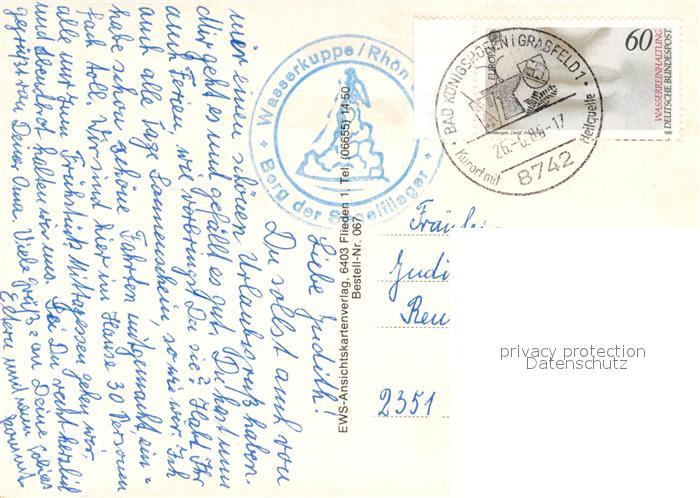 Liebe Judith!
Du sollst auch von
mir einen schönen Urlaubsgruß haben.
Mir geht es und gefällt es gut. Du hast nun
auch Ferien, wie verbringst Du sie? Habt Ihr
auch alle Tage Sonnenschein, so wie wir. Ich
habe schon schöne Fahrten mitgemacht ein=
fach toll. Wir sind hier im Hause 30 Personen
alle nur zum Frühstück Mittagessen gehen wir
und Abendbrot halten wir uns. Sei Du recht herzlich
gegrüßt von Deiner Oma. Viele Grüße an Deine lieben
Eltern und
EWS-Ansichtskartenverlag, 6403 Flieden 1, Tel. (06655) 14 50
Bestell-Nr. 067
Wasserkuppe / Rhön
Berg der Segelflieger
60
WASSERREINHALTUNG
DEUTSCHE BUNDESPOST
BAD KÖNIGSHOFEN i GRABFELD 1
-17
8742
Kurort mit Heilquelle
Fräulein
Judi
Reu
2351
privacy protection
Datenschutz